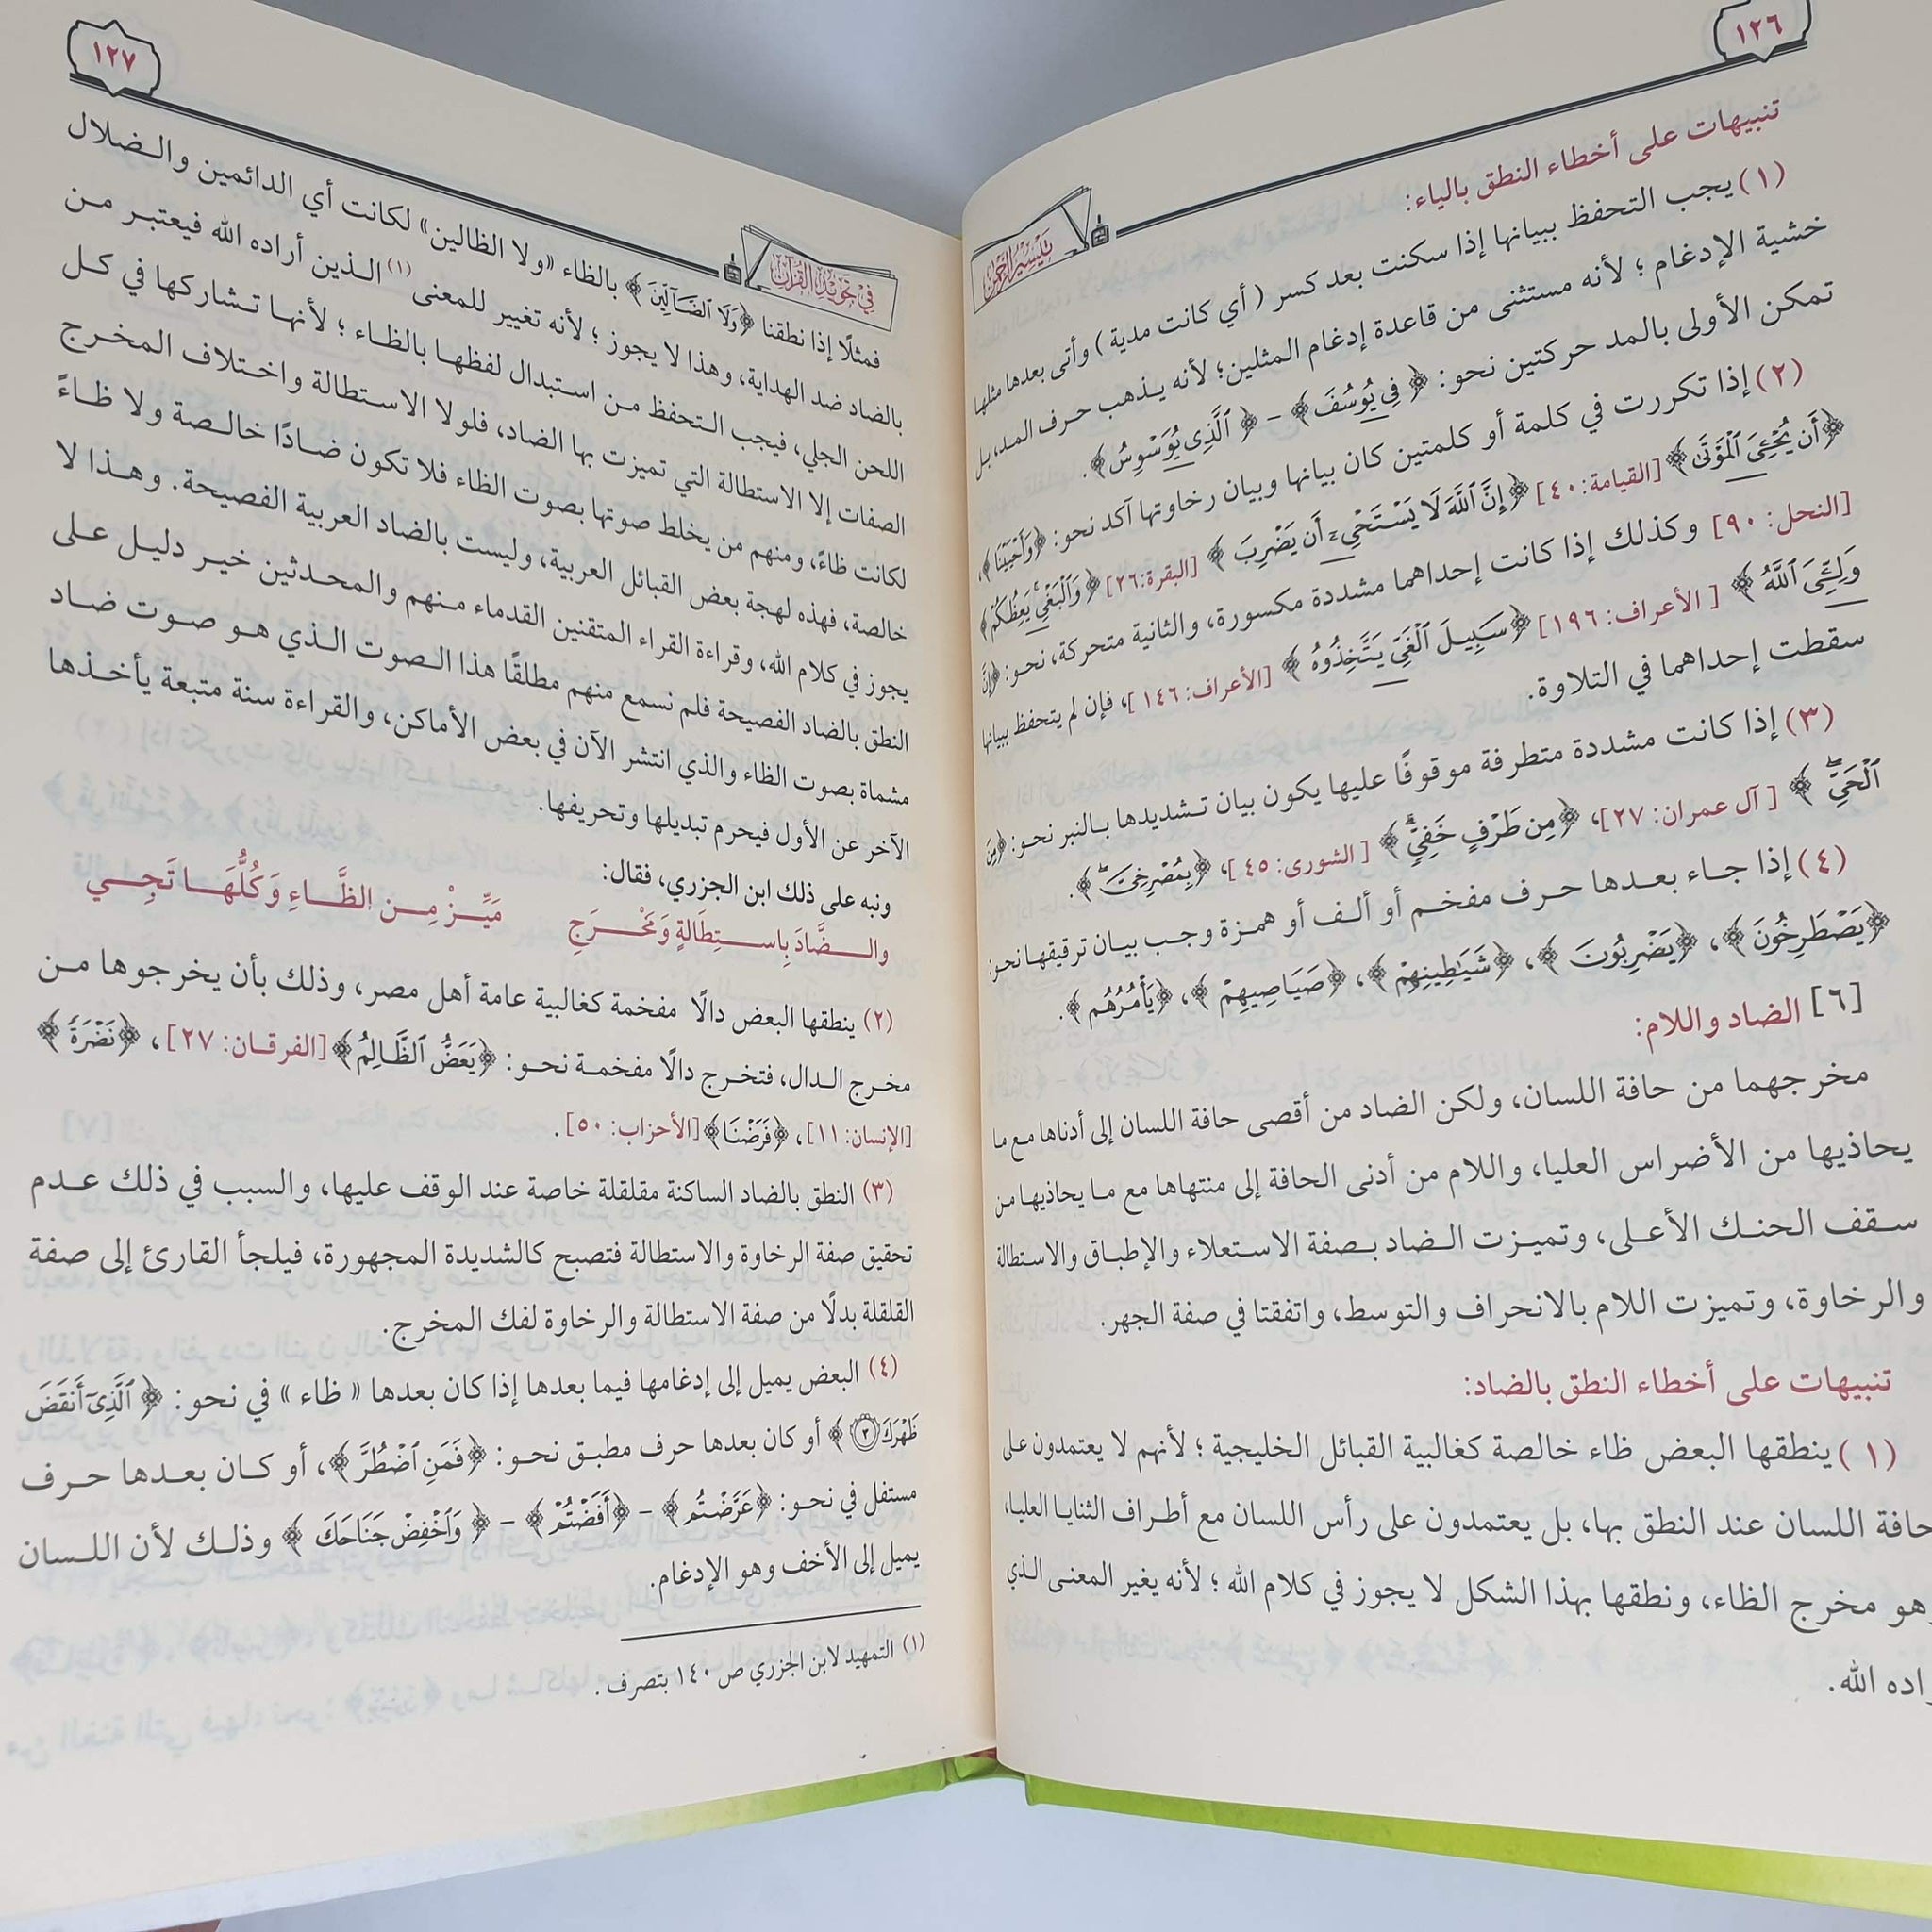 ١٢٦
تيسير الرحمن
تنبيهات على أخطاء النطق بالياء:
(١) يجب التحفظ ببيانها إذا سكنت بعد كسر ( أي كانت مدية ) وأتى بعدها مثلها
خشية الإدغام ؛ لأنه مستثنى من قاعدة إدغام المثلين؛ لأنه يذهب حرف المد، بل
تمكن الأولى بالمد حركتين نحو: ﴿ فِي يُوسُفَ ﴾ – ﴿ ٱلَّذِى يُوَسْوِسُ ﴾.
(٢) إذا تكررت في كلمة أو كلمتين كان بيانها وبيان رخاوتها آكد نحو: ﴿وَأَحْيَيْنَا﴾،
﴿أَن يُحْـِۧىَ ٱلْمَوْتَىٰ﴾ [القيامة: ٤٠] ﴿إِنَّ ٱللَّهَ لَا يَسْتَحْىِۦٓ أَن يَضْرِبَ ﴾ [البقرة:٢٦] ﴿ وَٱلْبَغْىِ يَعِظُكُمْ﴾
[النحل: ٩٠] وكذلك إذا كانت إحداهما مشددة مكسورة، والثانية متحركة، نحو: ﴿إِنَّ
وَلِـِّۧىَ ٱللَّهُ ﴾ [ الأعراف: ١٩٦] ﴿سَبِيلَ ٱلْغَىِّ يَتَّخِذُوهُ ﴾ [الأعراف: ١٤٦]، فإن لم يتحفظ ببيانها
سقطت إحداهما في التلاوة.
(٣) إذا كانت مشددة متطرفة موقوفًا عليها يكون بيان تشديدها بالنبر نحو: ﴿مِنَ
ٱلْحَىِّ ﴾ [ آل عمران: ٢٧]، ﴿مِن طَرْفٍ خَفِىٍّ ﴾ [ الشورى: ٤٥]، ﴿بِمُصْرِخِىَّ ﴾.
(٤) إذا جاء بعدها حرف مفخم أو ألف أو همزة وجب بيان ترقيقها نحو:
﴿يَصْطَرِخُونَ ﴾، ﴿يَضْرِبُونَ ﴾، ﴿شَيَـٰطِينِهِمْ ﴾، ﴿صَيَاصِيهِمْ ﴾، ﴿يَأْمُرُهُم ﴾.
[٦] الضاد واللام:
مخرجهما من حافة اللسان، ولكن الضاد من أقصى حافة اللسان إلى أدناها مع ما
يحاذيها من الأضراس العليا، واللام من أدنى الحافة إلى منتهاها مع ما يحاذيها من
سقف الحنك الأعلى، وتميزت الضاد بصفة الاستعلاء والإطباق والاستطالة
والرخاوة، وتميزت اللام بالانحراف والتوسط، واتفقتا في صفة الجهر.
تنبيهات على أخطاء النطق بالضاد:
(١) ينطقها البعض ظاء خالصة كغالبية القبائل الخليجية ؛ لأنهم لا يعتمدون على
حافة اللسان عند النطق بها، بل يعتمدون على رأس اللسان مع أطراف الثنايا العليا،
وهو مخرج الظاء، ونطقها بهذا الشكل لا يجوز في كلام الله ؛ لأنه يغير المعنى الذي
راده الله.
١٢٧
في تجويد القرآن
فمثلًا إذا نطقنا ﴿وَلَا ٱلضَّآلِّينَ ﴾ بالظاء «ولا الظالين» لكانت أي الدائمين والضلال
بالضاد ضد الهداية، وهذا لا يجوز ؛ لأنه تغيير للمعنى (١) الذين أراده الله فيعتبر من
اللحن الجلي، فيجب التحفظ من استبدال لفظها بالظاء ؛ لأنها تشاركها في كل
الصفات إلا الاستطالة التي تميزت بها الضاد، فلولا الاستطالة واختلاف المخرج
لكانت ظاءً، ومنهم من يخلط صوتها بصوت الظاء فلا تكون ضادًا خالصة ولا ظاءً
خالصة، فهذه لهجة بعض القبائل العربية، وليست بالضاد العربية الفصيحة. وهذا لا
يجوز في كلام الله، وقراءة القراء المتقنين القدماء منهم والمحدثين خير دليل على
النطق بالضاد الفصيحة فلم نسمع منهم مطلقًا هذا الصوت الذي هو صوت ضاد
مشماة بصوت الظاء والذي انتشر الآن في بعض الأماكن، والقراءة سنة متبعة يأخذها
الآخر عن الأول فيحرم تبديلها وتحريفها.
ونبه على ذلك ابن الجزري، فقال:
والضَّادَ بِاسْتِطَالَةٍ وَمَخْرَجِ مَيِّزْ مِن الظَّاءِ وَكُلُّهَا تَجِي
(٢) ينطقها البعض دالًا مفخمة كغالبية عامة أهل مصر، وذلك بأن يخرجوها من
مخرج الدال، فتخرج دالًا مفخمة نحو: ﴿يَعَضُّ ٱلظَّالِمُ ﴾[الفرقان: ٢٧]، ﴿نَضْرَةً ﴾
[الإنسان: ١١]، ﴿فَرَضْنَا﴾[الأحزاب: ٥٠].
(٣) النطق بالضاد الساكنة مقلقلة خاصة عند الوقف عليها، والسبب في ذلك عدم
تحقيق صفة الرخاوة والاستطالة فتصبح كالشديدة المجهورة، فيلجأ القارئ إلى صفة
القلقلة بدلًا من صفة الاستطالة والرخاوة لفك المخرج.
(٤) البعض يميل إلى إدغامها فيما بعدها إذا كان بعدها « ظاء » في نحو: ﴿ ٱلَّذِىٓ أَنقَضَ
ظَهْرَكَ ٣ ﴾ أو كان بعدها حرف مطبق نحو: ﴿فَمَنِ ٱضْطُرَّ ﴾، أو كان بعدها حرف
مستفل في نحو: ﴿عَرَّضْتُم ﴾ – ﴿أَفَضْتُمْ ﴾ – ﴿ وَٱخْفِضْ جَنَاحَكَ ﴾ وذلك لأن اللسان
يميل إلى الأخف وهو الإدغام.
(١) التمهيد لابن الجزري ص ١٤٠ بتصرف .